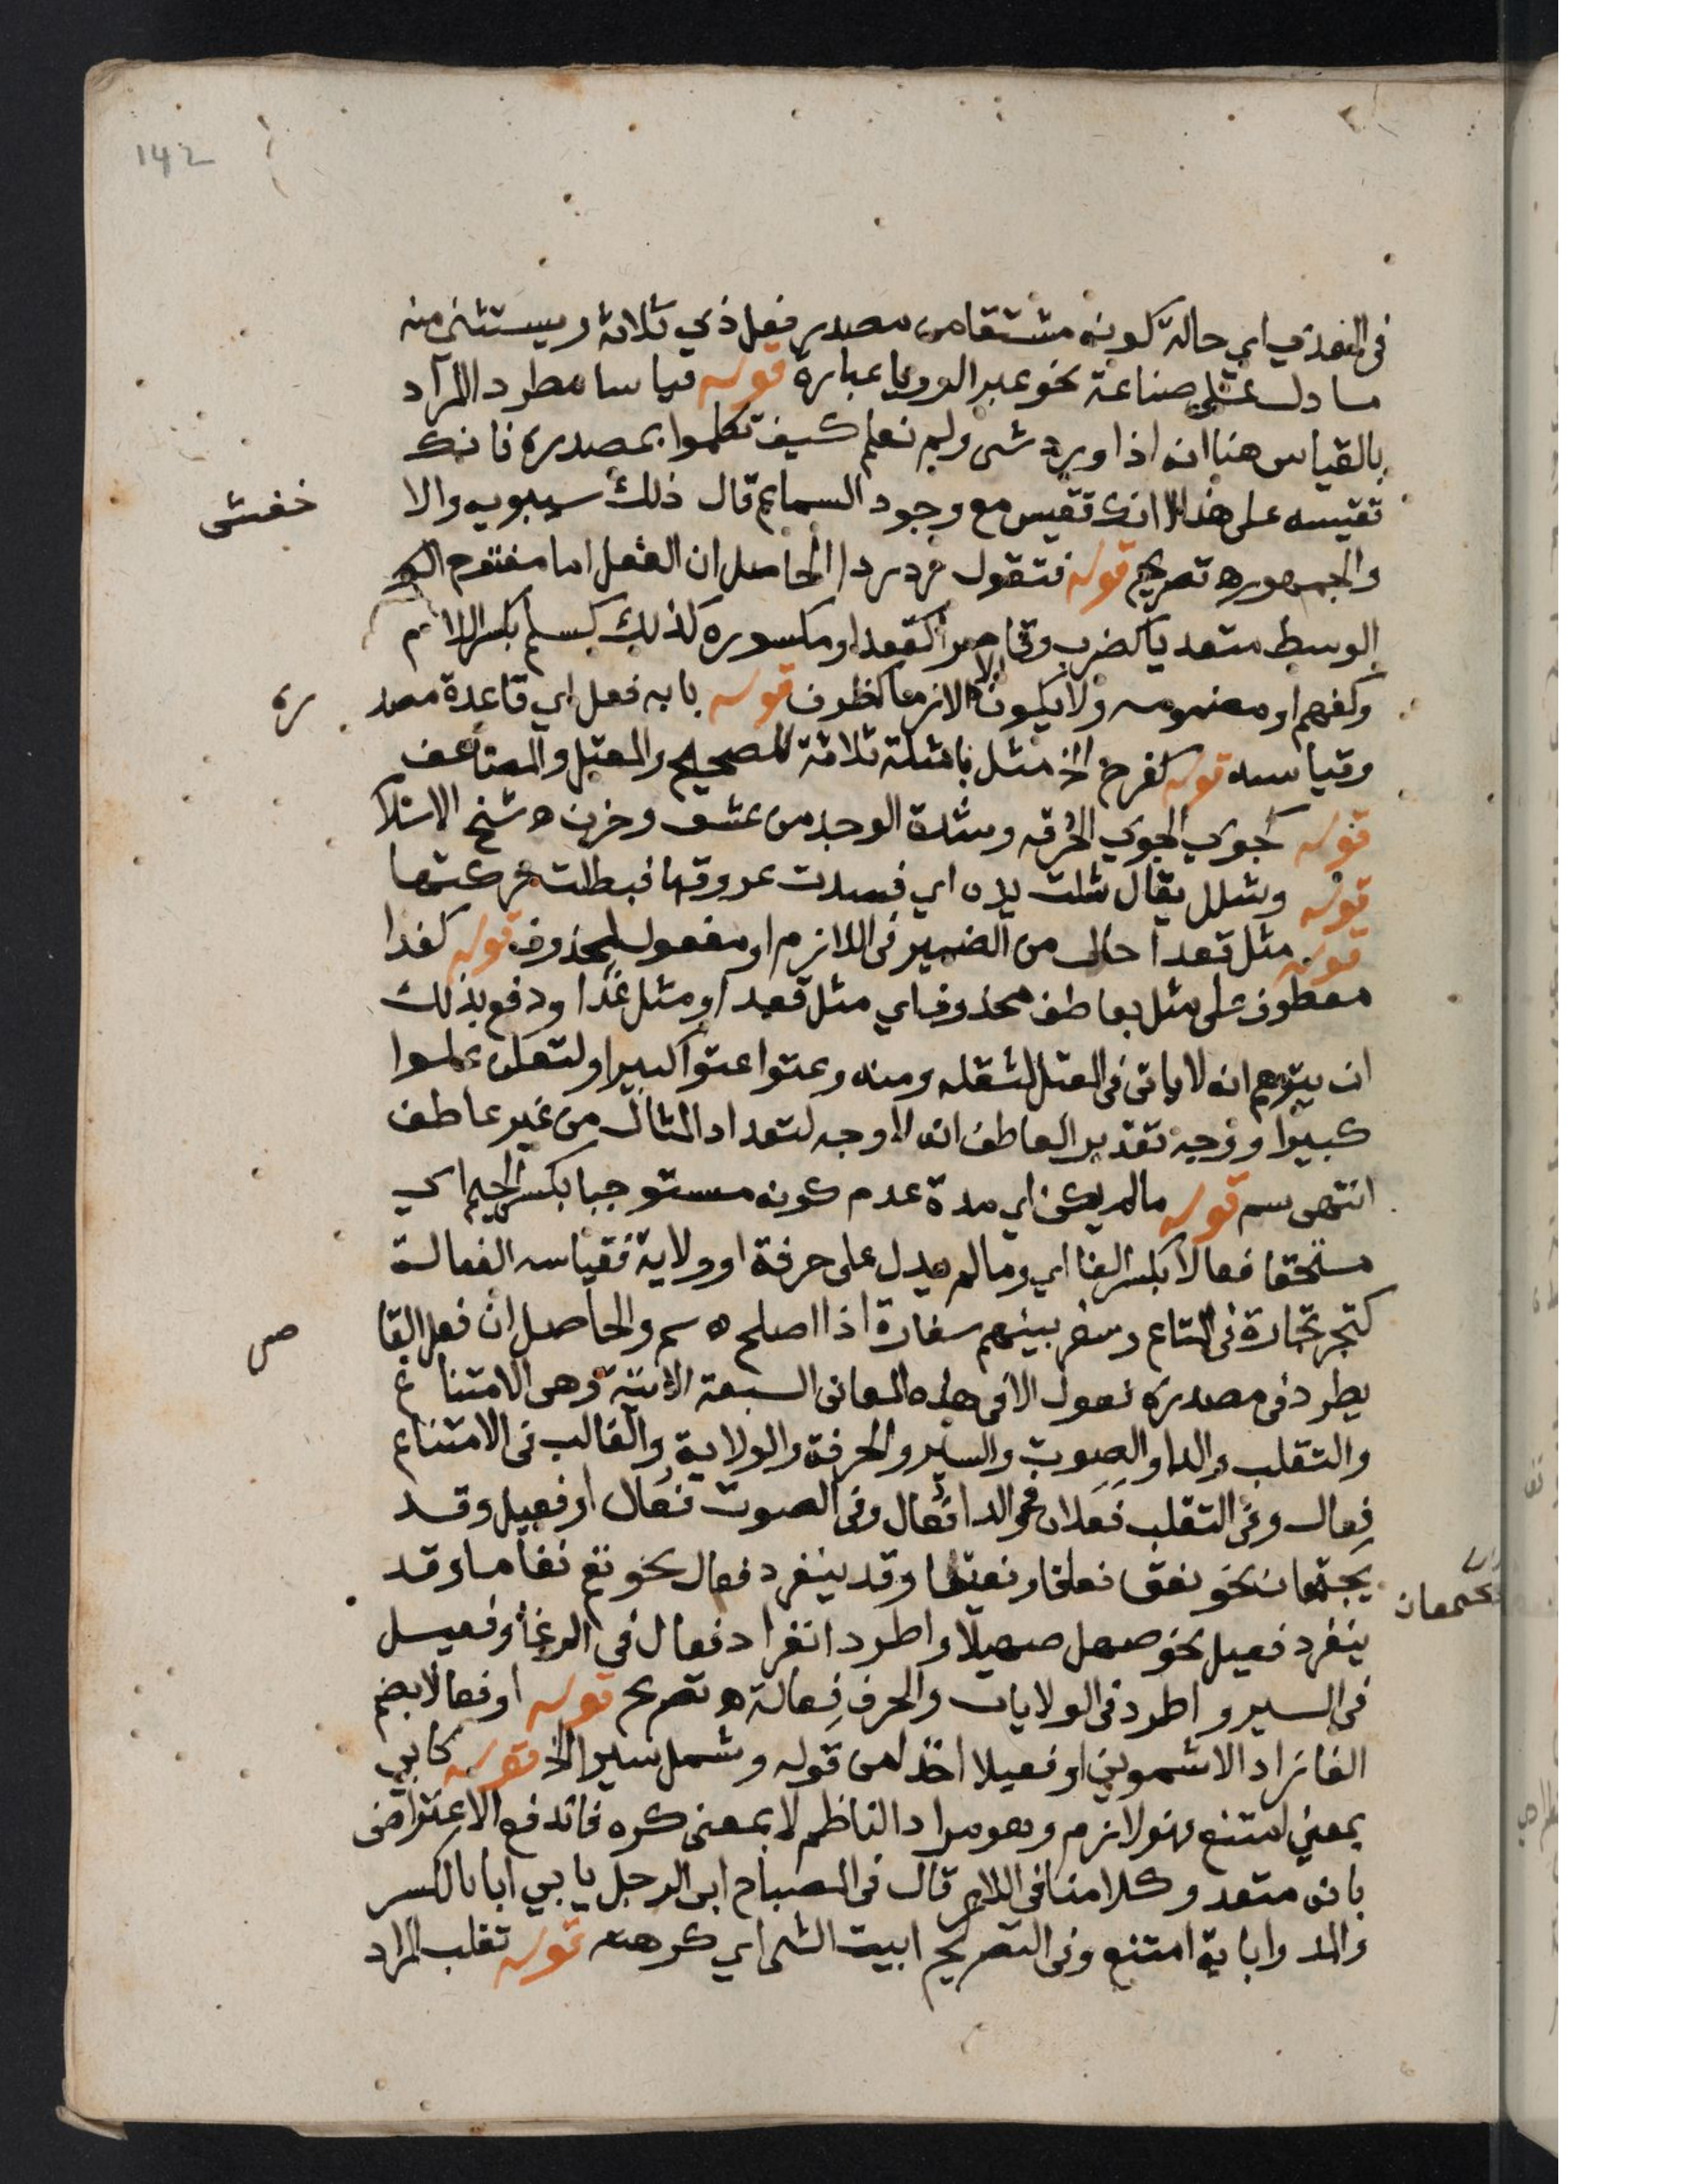 142
في المعدي اي حالة كونه مشتقا من مصدر فعل ذي ثلاثة ويستثنى منه
ما دل على صناعة نحو عبر الرويا عبارة قوله قياسا مطردا المراد
بالقياس هنا انه اذا ورد شي ولم نعلم كيف تكلموا بمصدره فانك
تقيسه على هذا لا انك تقيس مع وجود السماع قال ذلك سيبويه والا
خفش
والجمهور ه تصريح قوله فتقول رد ردا الحاصل ان الفعل اما مفتوح
الوسط متعديا كضرب وقاصرا كقعد او مكسوره كذلك كسلم بكسر اللام
وكفهم او مضمومه ولا يكون الا لازما كظرف قوله بابه فعل اي قاعدة مصد
ره
وقياسه قوله كفرح الخ مثل بامثلة ثلاثة للصحيح والمعتل والمضاعف
قوله كجوي الجوي الحرقه وشدة الوجد من عشق وحزن ه شيخ الاسلا
قوله وشلل يقال شلت يده اي فسدت عروقها فبطلت حركتها
قوله مثل قعدا حال من الضمير في اللازم او مفعول لمحذوف قوله كغدا
معطوف على مثل بعاطف محذوف اي مثل قعد او مثل غدا ودفع بذلك
ان يتوهم انه لا ياتي في المعتل لثقله ومنه وعتوا عتوا كبيرا ولتعلن علوا
كبيرا ووجه تقدير العاطف انه لا وجه لتعداد المثال من غير عاطف
انتهى سم قوله ما لم يكن اي مدة عدم كونه مستوجبا بكسر الجيم اي
مستحقا فعالا بكسر الفا اي وما لم يدل على حرفة او ولاية فقياسه الفعالة
كتجر تجارة في المتاع وسفر بينهم سفارة اذا اصلح ه سم والحاصل ان فعل القا
صر
يطرد في مصدره فعول الا في هذه المعاني السبعة الاتية وهي الامتناع
والتقلب والدا والصوت والسير والحرفة والولاية والغالب في الامتناع
فعال وفي التقلب فعلان وفي الدا فعال وفي الصوت فعال او فعيل وقد
يجتمعان نحو نعق نعاقا ونعيقا وقد ينفرد فعال نحو بغم بغاما وقد
يجتمعان
ينفرد فعيل نحو صهل صهيلا واطرد انفراد فعال في الرغا وفعيل
في السير واطرد في الولايات والحرف فعالة ه تصريح قوله او فعالا بضم
الفا زاد الاشموني او فعيلا اخذا من قوله وشمل سيرا الخ قوله كابي
بمعني امتنع فهو لازم وهو مراد الناظم لا بمعنى كره فاندفع الاعتراض
بانه متعد وكلامنا في اللازم قال في المصباح ابى الرجل يابي ابا بالكسر
والمد واباية امتنع وفي التصريح ابيت الشي اي كرهته قوله تقلب المراد